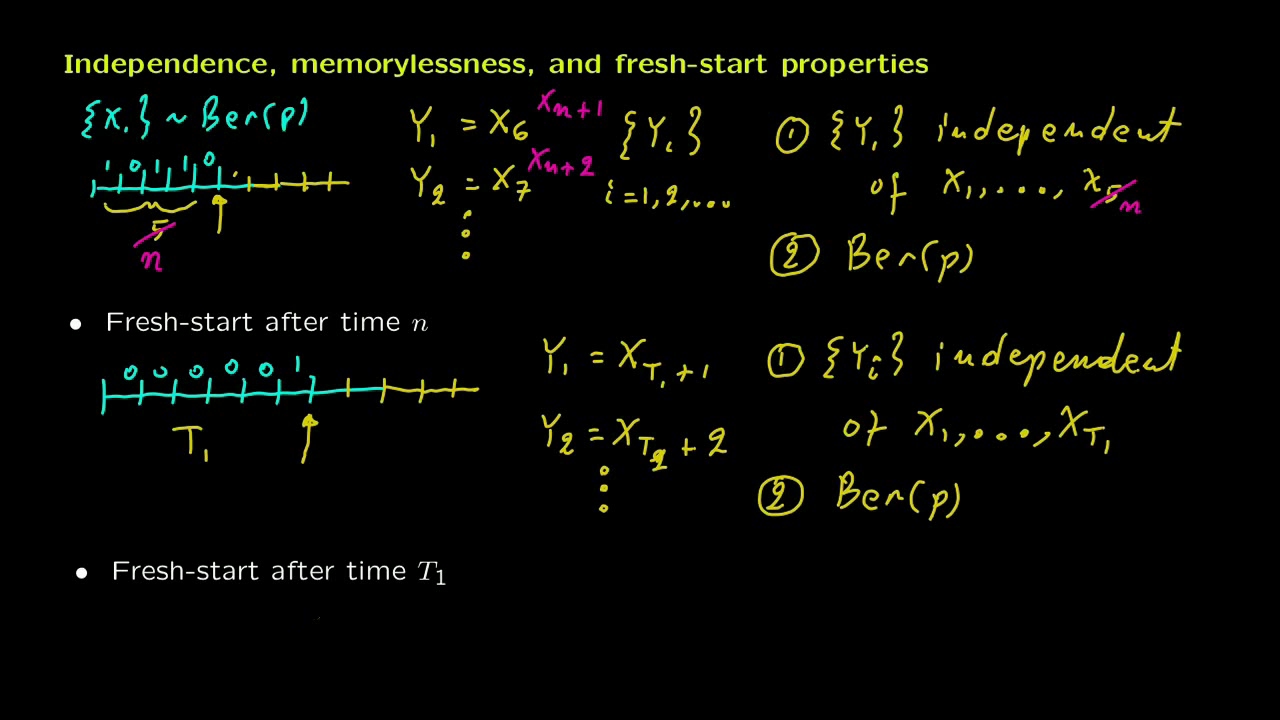 Independence, memorylessness, and fresh-start properties
{X.} ~ Ber(p)
1 0 1 1 0
5
n
Y1 = X6 Xn+1
Y2 = X7 Xn+2
{Yi}
i=1,2,...
① {Yi} independent
of X1,..., X5 n
② Ber(p)
• Fresh-start after time n
0 0 0 0 0 1
T1
Y1 = XT1+1
Y2 = XT2+2
① {Yi} independent
of X1,...,XT1
② Ber(p)
• Fresh-start after time T1